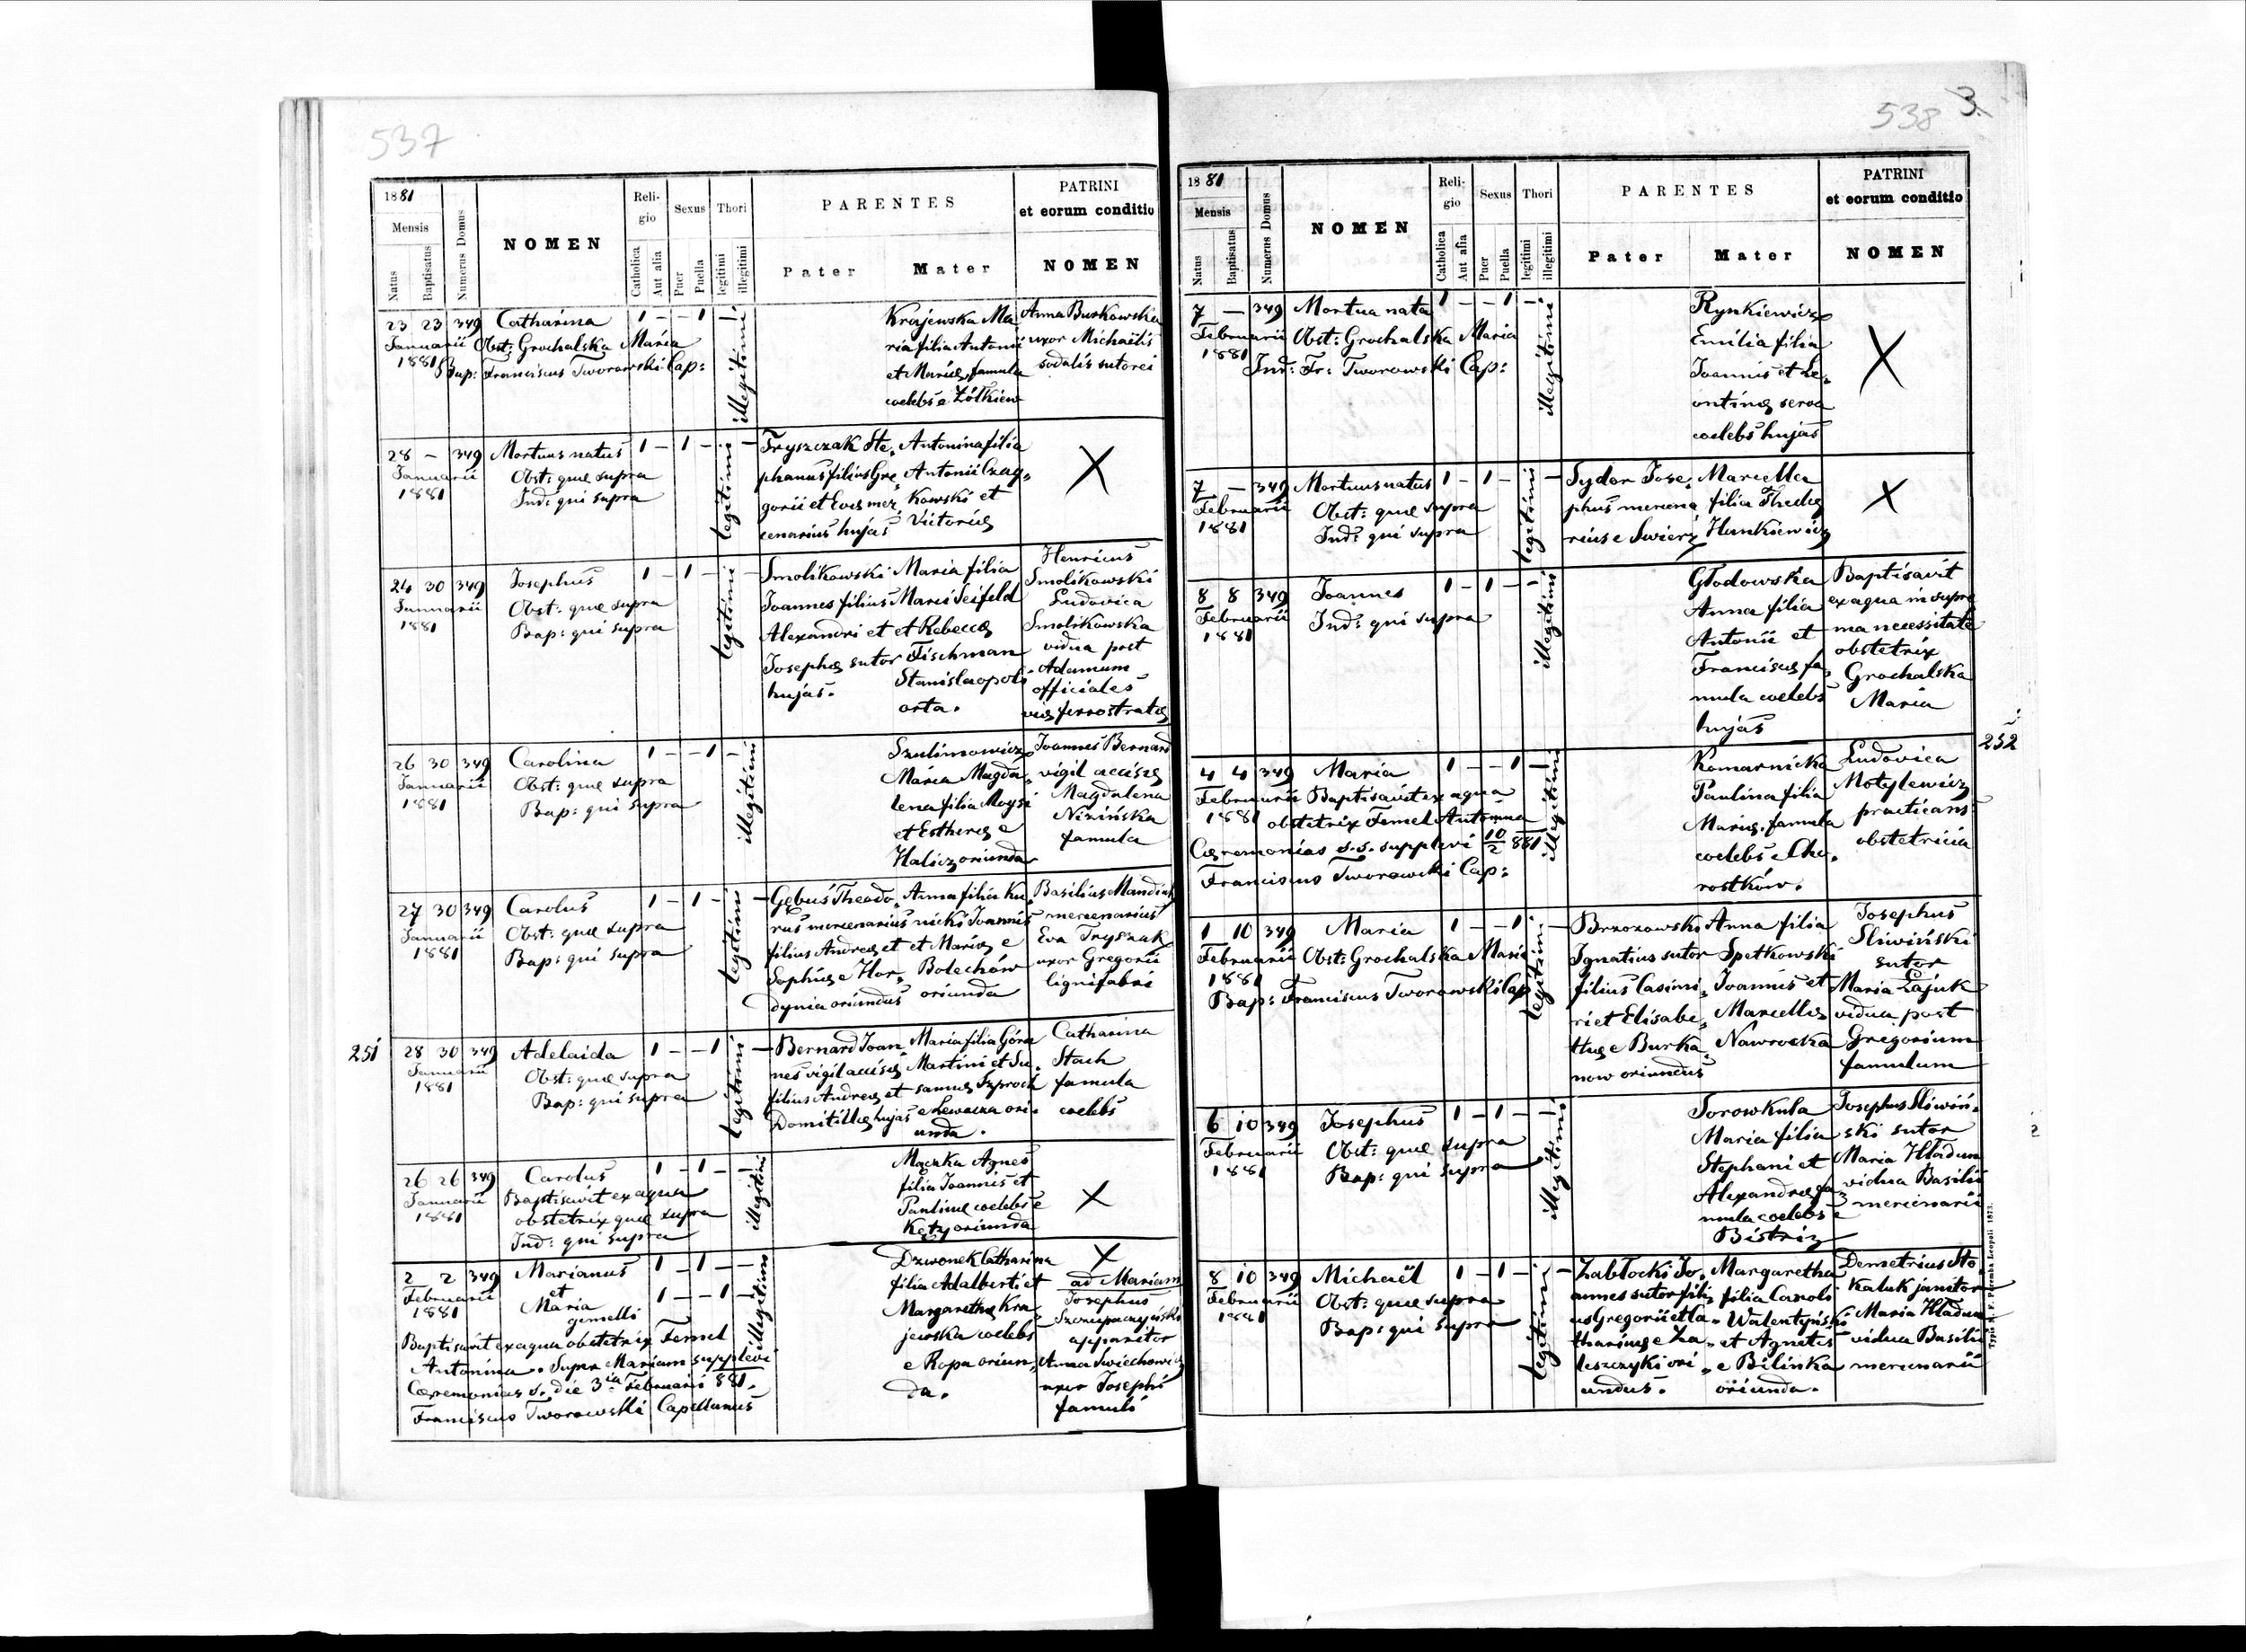 537
1881
Mensis
Natus
Baptisatus
Numerus Domus
NOMEN
Religio
Catholica
Aut alia
Sexus
Puer
Puella
Thori
legitimi
illegitimi
PARENTES
Pater
Mater
PATRINI
et eorum conditio
NOMEN
23 23 349 Catharina 1 – – 1 –
Januarii Obst: Grochalska Maria
1881 Bap: Franciscus Tworowski Cap:
illegitimi
Krajewska Ma
ria filia Antonii
et Mariæ, famula
coelebs e Żółkiew
Anna Burkowska
uxor Michaëlis
sodalis sutorei
28 – 349 Mortuus natus 1 – 1 – –
Januarii Obst: quæ supra
1881 Ind: qui supra
legitimi
Tryszczak Ste,
phanus filius Gre,
gorii et Evæ mer,
cenarius hujas
Antonina filia
Antonii Czaj,
kowski et
Victoriæ
X
24 30 349 Josephus 1 – 1 – –
Januarii Obst: quæ supra
1881 Bap: qui supra
legitimi
Smolikowski
Joannes filius
Alexandri et
Josephæ sutor
hujas.
Maria filia
Marci Seifeld
et Rebeccæ
Fischman
Stanislaopoli
orta.
Henricus
Smolikowski
Ludovica
Smolikowska
vidua post
Adamum
officiales
viæ ferrostratæ
26 30 349 Carolina 1 – – 1 –
Januarii Obst: quæ supra
1881 Bap: qui supra
illegitimi
Szulimowicz
Maria Magda,
lena filia Moysi
et Estheræ e
Halicz oriunda
Joannes Bernard
vigil accisæ
Magdalena
Nizińska
famula
27 30 349 Carolus 1 – 1 – –
Januarii Obst: quæ supra
1881 Bap: qui supra
legitimi
Gębuś Theodo,
rus mercenarius
filius Andreæ et
Sophiæ e Hor,
dynia oriundus
Anna filia Ku,
nicki Joannis
et Mariæ e
Bolechów
oriunda
Basilius
mercenarius
Eva Tryszak
uxor Gregorii
lignifabri
251
28 30 349 Adelaida 1 – – 1 –
Januarii Obst: quæ supra
1881 Bap: qui supra
legitimi
Bernard Joan,
nes vigil accisæ
filius Andreæ et
Domitillæ hujas
Maria filia Góra
Martini et Su,
sannæ Szproch
e Lewacza ori,
unda.
Catharina
Stach
famula
coelebs
26 26 349 Carolus 1 – 1 – –
Januarii Baptisavit ex aqua
1881 obstetrix quæ supra
Ind: qui supra
illegitimi
Mączka Agnes
filia Joannis et
Paulinæ coelebs e
Kęty oriunda
X
2 2 349 Marianus 1 – 1 – –
Februarii et
1881 Maria 1 – – 1 –
gemelli
Baptisavit ex aqua obstetrix Femel
Antonina. Super Mariam supplevi
Cæremonias s. die 3ia Februarii 881.
Franciscus Tworowski Capellanus
illegitimi
Dzwonek Catharina
filia Adalberti et
Margarethæ Kra
jewska coelebs
e Ropa oriun,
da.
X
ad Mariam
Josephus
apparitor
Anna Swiechowicz
uxor Josephi
famuli
538 3.
1881
Mensis
Natus
Baptisatus
Numerus Domus
NOMEN
Religio
Catholica
Aut alia
Sexus
Puer
Puella
Thori
legitimi
illegitimi
PARENTES
Pater
Mater
PATRINI
et eorum conditio
NOMEN
7 – 349 Mortua nata 1 – – 1 –
Februarii Obst: Grochalska Maria
1881 Ind: Fr: Tworowski Cap:
illegitimi
Rynkiewicz
Emilia filia
Joannis et Le,
ontinæ serva
coelebs hujas
X
7 – 349 Mortuus natus 1 – 1 – –
Februarii Obst: quæ supra
1881 Ind: qui supra
legitimi
Sydor Jose,
phus mercena
rius e Swierz
Marcella
filia Theclæ
Hunkiewicz
X
8 8 349 Joannes 1 – 1 – –
Februarii Ind: qui supra
1881
illegitimi
Głodowska
Anna filia
Antonii et
Franciscæ fa,
mula coelebs
hujas
Baptisavit
ex aqua in supre
ma necessitate
obstetrix
Grochalska
Maria
252
4 4 349 Maria 1 – – 1 –
Februarii Baptisavit ex aqua
1881 obstetrix Femel Antonina
Cæremonias s.s. supplevi 10/2 881
Franciscus Tworowski Cap:
illegitimi
Komarnicka
Paulina filia
Mariæ, famula
coelebs e Cho,
rostków.
Ludovica
Motylewicz
practicans
obstetricia
1 10 349 Maria 1 – – 1 –
Februarii Obst: Grochalska Maria
1881
Bap: Franciscus Tworowski Cap
legitimi
Brzozowski
Ignatius sutor
filius Casimi,
ri et Elisabe,
thæ e Burka,
now oriundus
Anna filia
Spetkowski
Joannis et
Marcellæ
Nawrocka
Josephus
Sliwiński
sutor
Maria Łajuk
vidua post
Gregorium
famulum
6 10 349 Josephus 1 – 1 – –
Februarii Obst: quæ supra
1881 Bap: qui supra
illegitimi
Torowkula
Maria filia
Stephani et
Alexandræ fa,
mula coelebs e
Bistriz
Josephus Sliwiń,
ski sutor
Maria Hładun
vidua Basilii
mercenarii
2
8 10 349 Michaël 1 – 1 – –
Februarii Obst: quæ supra
1881 Bap: qui supra
legitimi
Zabłocki Jo,
annes sutor fili,
us Gregorii et Ca,
tharinæ e Za,
leszczyki ori,
undus.
Margaretha
filia Caroli
Walentyński
et Agnetis
e Bilinka
oriunda.
Demetrius Sto,
kaluk janitor
Maria Hładun
vidua Basilii
mercenarii
Typis A. F. Poremba Leopoli 1873.